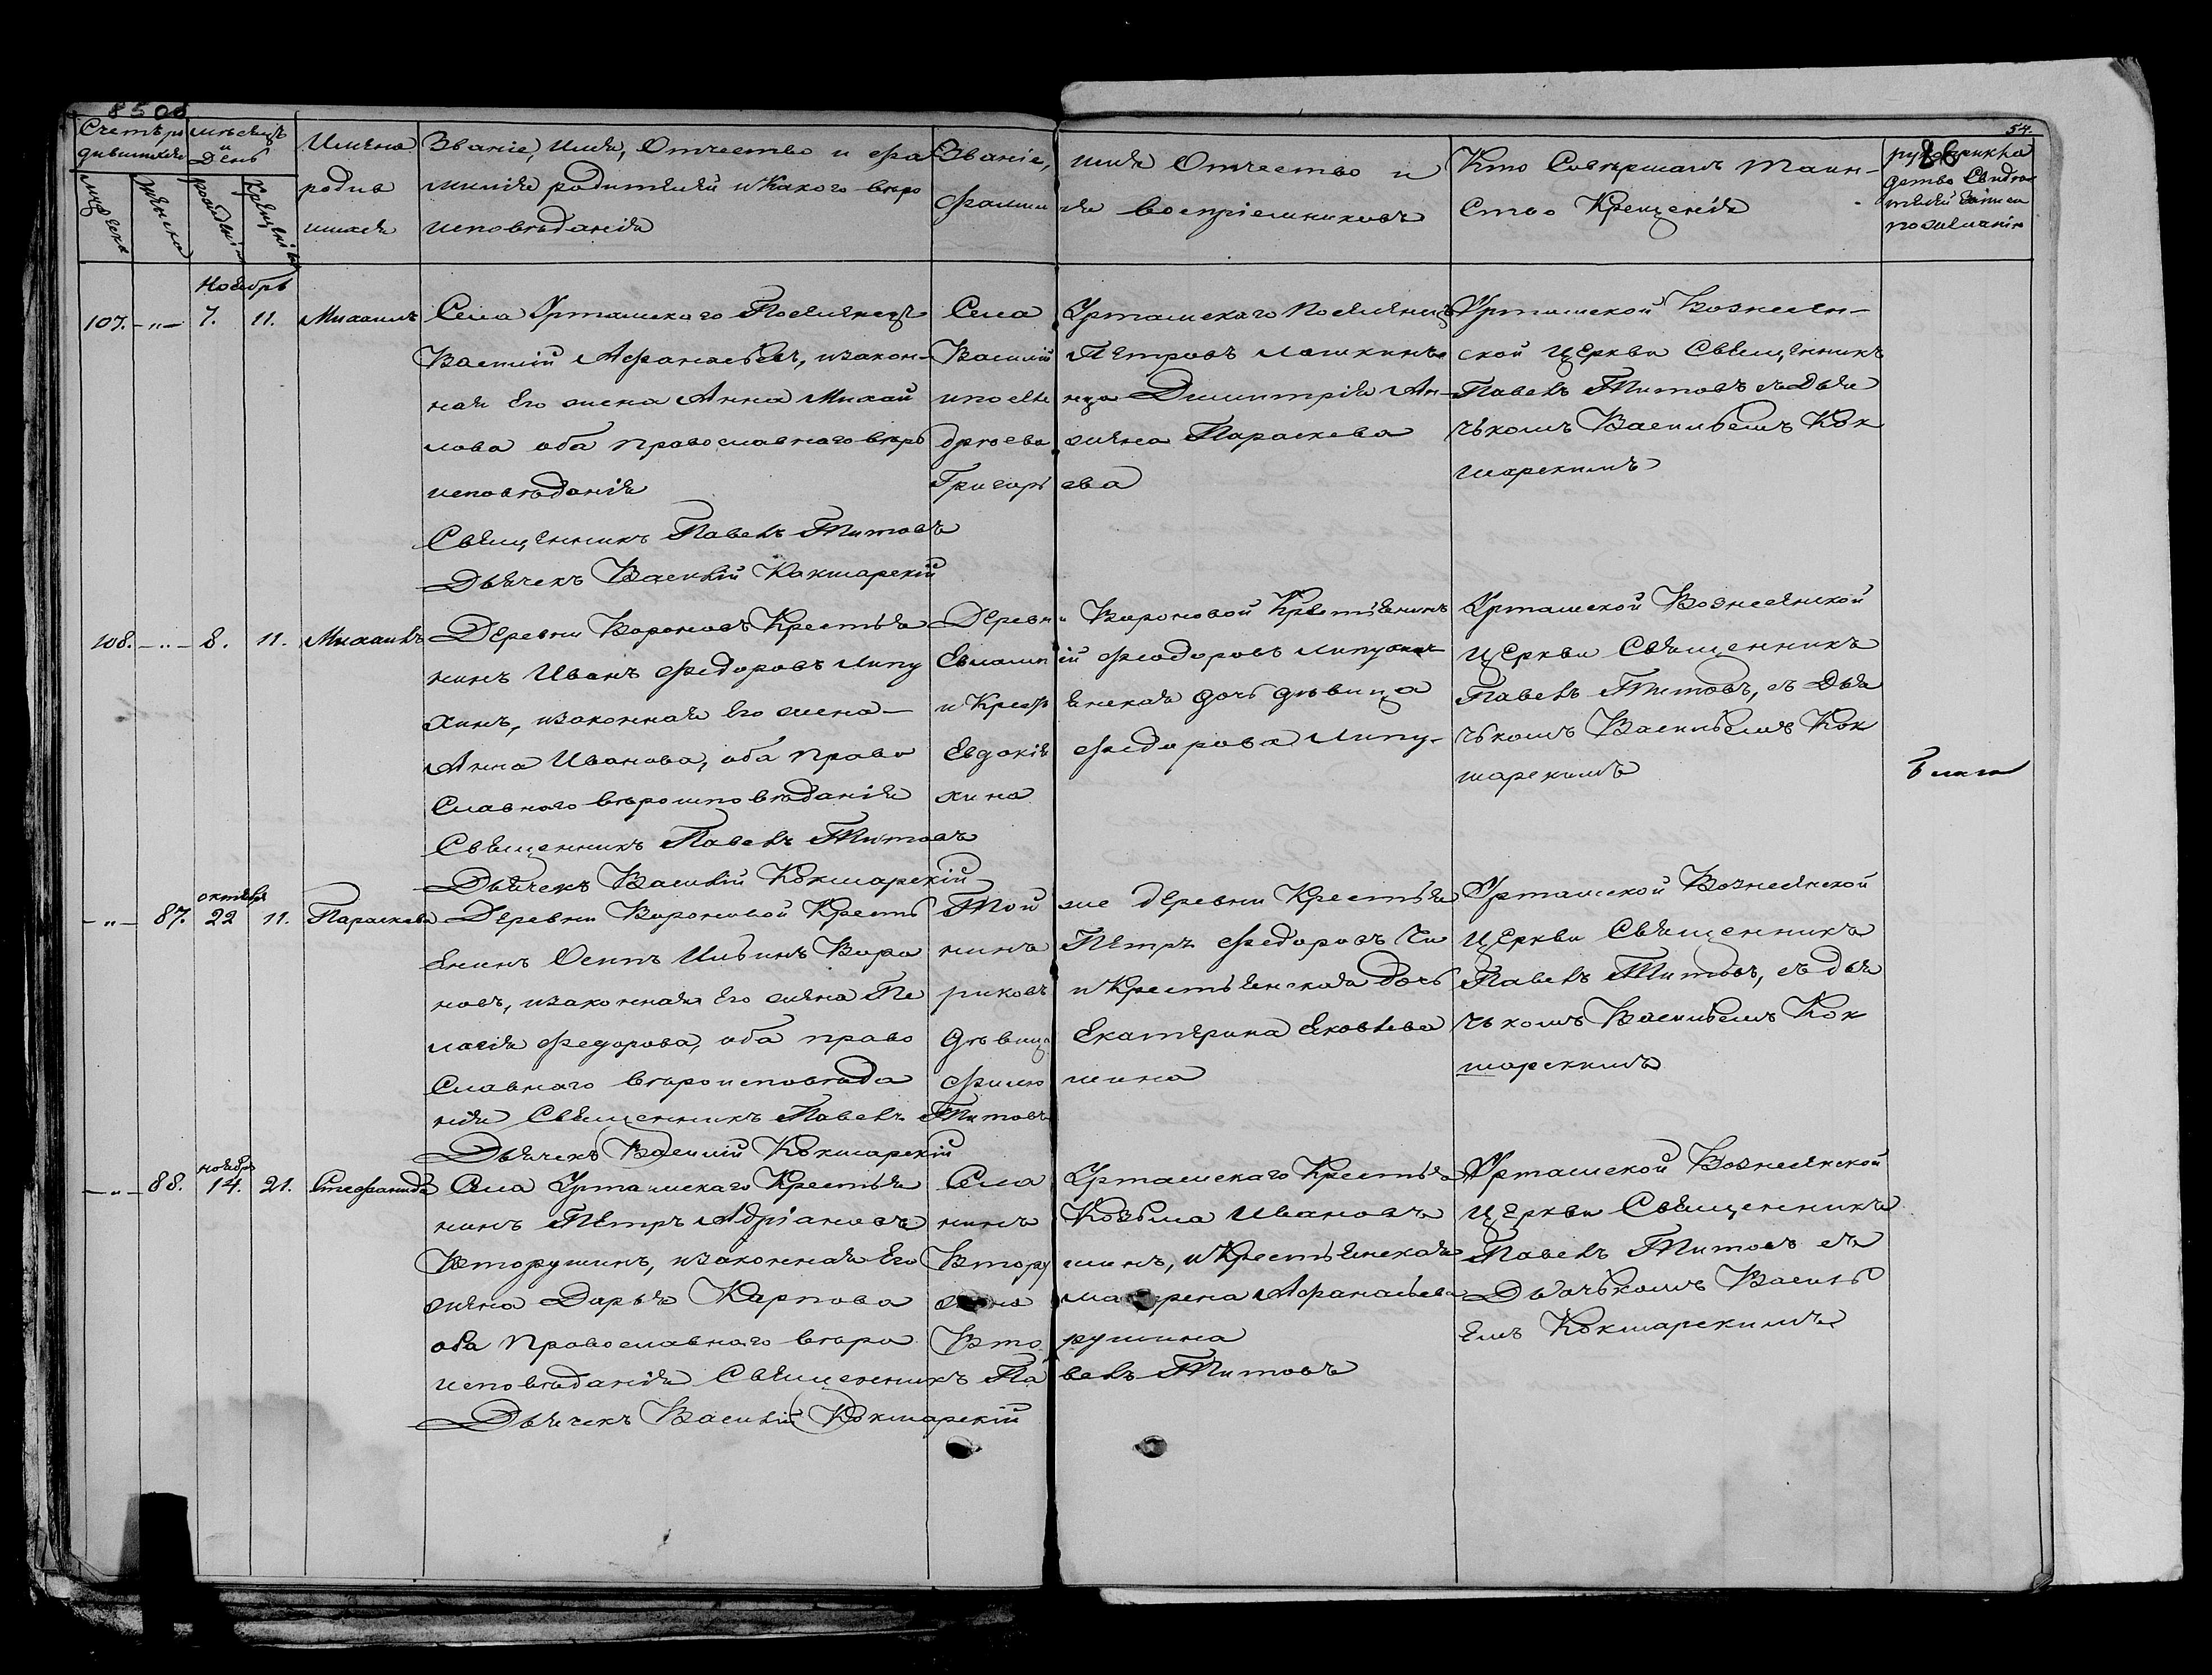 8500
54.
86
Счетъ ро
дившихся
мужеска
женска
мѣсяцъ
и
День
рожденія
Крещенія
Имена
родив
шихся
Званіе, Имя, Отчество и фа
милія родителей и Какого вѣро
исповѣданія
Званіе, имя Отчество и
фамилія воспріемниковъ
Кто Совершалъ Таин-
Ство Крещенія
рукоприкла
детво Свидѣ
телей записи
по желанію
Ноябрь
107. -"- 7. 11. Михаилъ
Села Урташскаго Поселянецъ
Василій Афанасьевъ, изакон-
ная Его жена Анна Михай
лова оба православнаго вѣро
исповѣданія
Священникъ Павелъ Титовъ
Дьячекъ Василій Кокшарскій
Села Урташскаго Поселянецъ
Василій Петровъ Лошкинъ
и поселенца Димитрія Ан-
дрюева жена Параскева
Григорьева
Урташской Вознесен-
ской Церкви Священникъ
Павелъ Титовъ съ Дья
чькомъ Васильемъ Кок
шарскимъ
108. -"- 8. 11. Михаилъ
Деревни Вороновъ Крестья
нинъ Иванъ Федоровъ Липу
хинъ, изаконная Его жена-
Анна Иванова, оба право
Славнаго вѣроисповѣданія
Священникъ Павелъ Титовъ
Дьячекъ Василій Кокшарскій
Деревни Вороновой Крестьянинъ
Евлампій Феодоровъ Липухинъ
и Крестьянская дочь дѣвица
Евдокія Федорова Липу-
хина
Урташской Вознесенской
Церкви Священникъ
Павелъ Титовъ, съ Дья
чькомъ Васильемъ Кок
шарскимъ
-"- 87. октября 22 11. Параскева
Деревни Вороновой Кресть
янинъ Осипъ Ильинъ Воро
новъ, изаконная Его жена Пе
лагія Федорова, оба право
Славнаго вѣроисповѣда
нія Священникъ Павелъ Титовъ
Дьячекъ Василій Кокшарскій
Той же деревни Крестья
нинъ Петръ Федоровъ Чи
риковъ и Крестьянская дочь
дѣвица Екатерина Яковлева
Филюшина
Урташской Вознесенской
Церкви Священникъ
Павелъ Титовъ, съ дья
чькомъ Васильемъ Кок
шарскимъ
-"- 88. ноября 14. 21. Стефанида
Села Урташскаго Крестья
нинъ Петръ Адріановъ
Вторушинъ, изаконная Его
жена Дарья Карпова
оба Православнаго вѣро
исповѣданія Священникъ Павелъ Титовъ
Дьячекъ Василій Кокшарскій
Села Урташскаго Крестья
нинъ Козьма Ивановъ
Вторушинъ, и Крестьянская
жена Матрена Афанасьева
Вторушина
Урташской Вознесенской
Церкви Священникъ
Павелъ Титовъ съ
Дьячькомъ Василь
емъ Кокшарскимъ